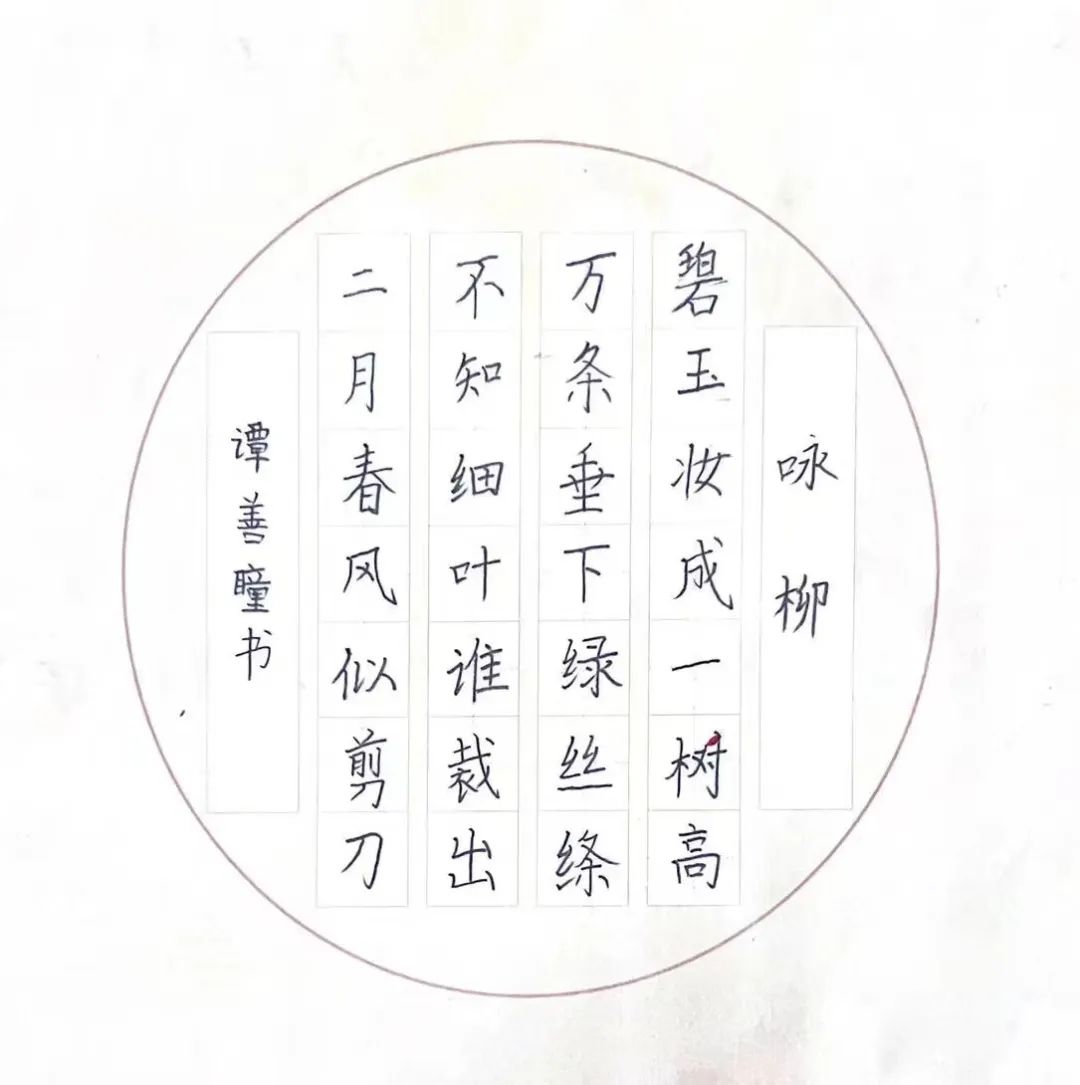 咏柳
碧玉妆成一树高
万条垂下绿丝绦
不知细叶谁裁出
二月春风似剪刀
谭善瞳书